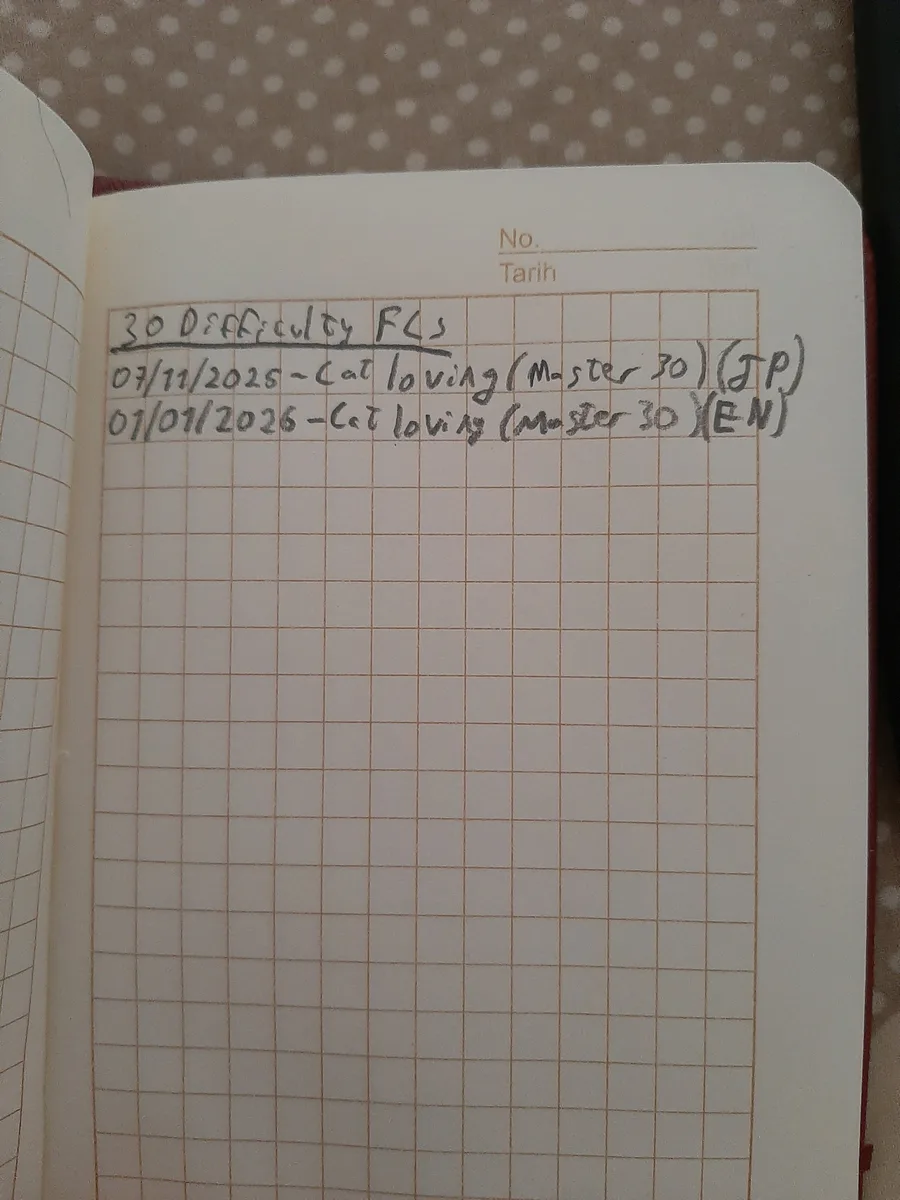 No.
Tarih
30 Difficulty FCs
07/11/2025-Cat loving (Master 30) (JP)
01/01/2026-Cat loving (Master 30)(EN)